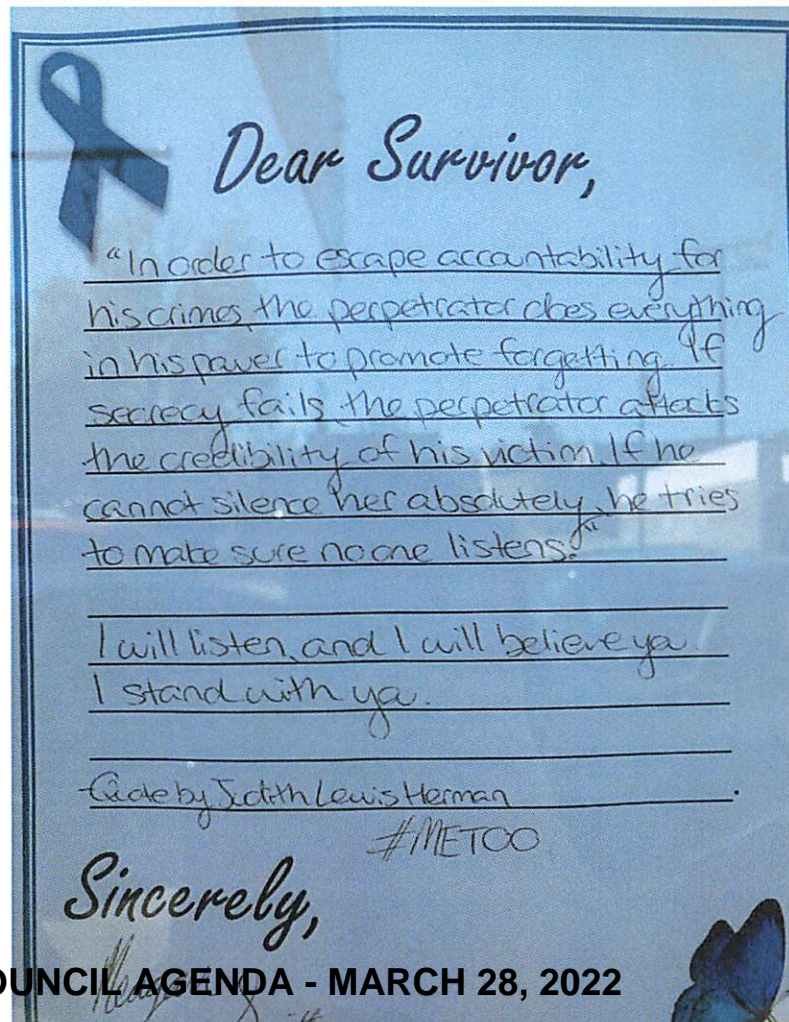 Dear Survivor,
"In order to escape accountability for
his crimes, the perpetrator does everything
in his power to promote forgetting. If
secrecy fails, the perpetrator attacks
the credibility of his victim. If he
cannot silence her absolutely, he tries
to make sure no one listens."
I will listen, and I will believe you.
I stand with you.
Quote by Judith Lewis Herman
#METOO
Sincerely,
OUNCIL AGENDA - MARCH 28, 2022